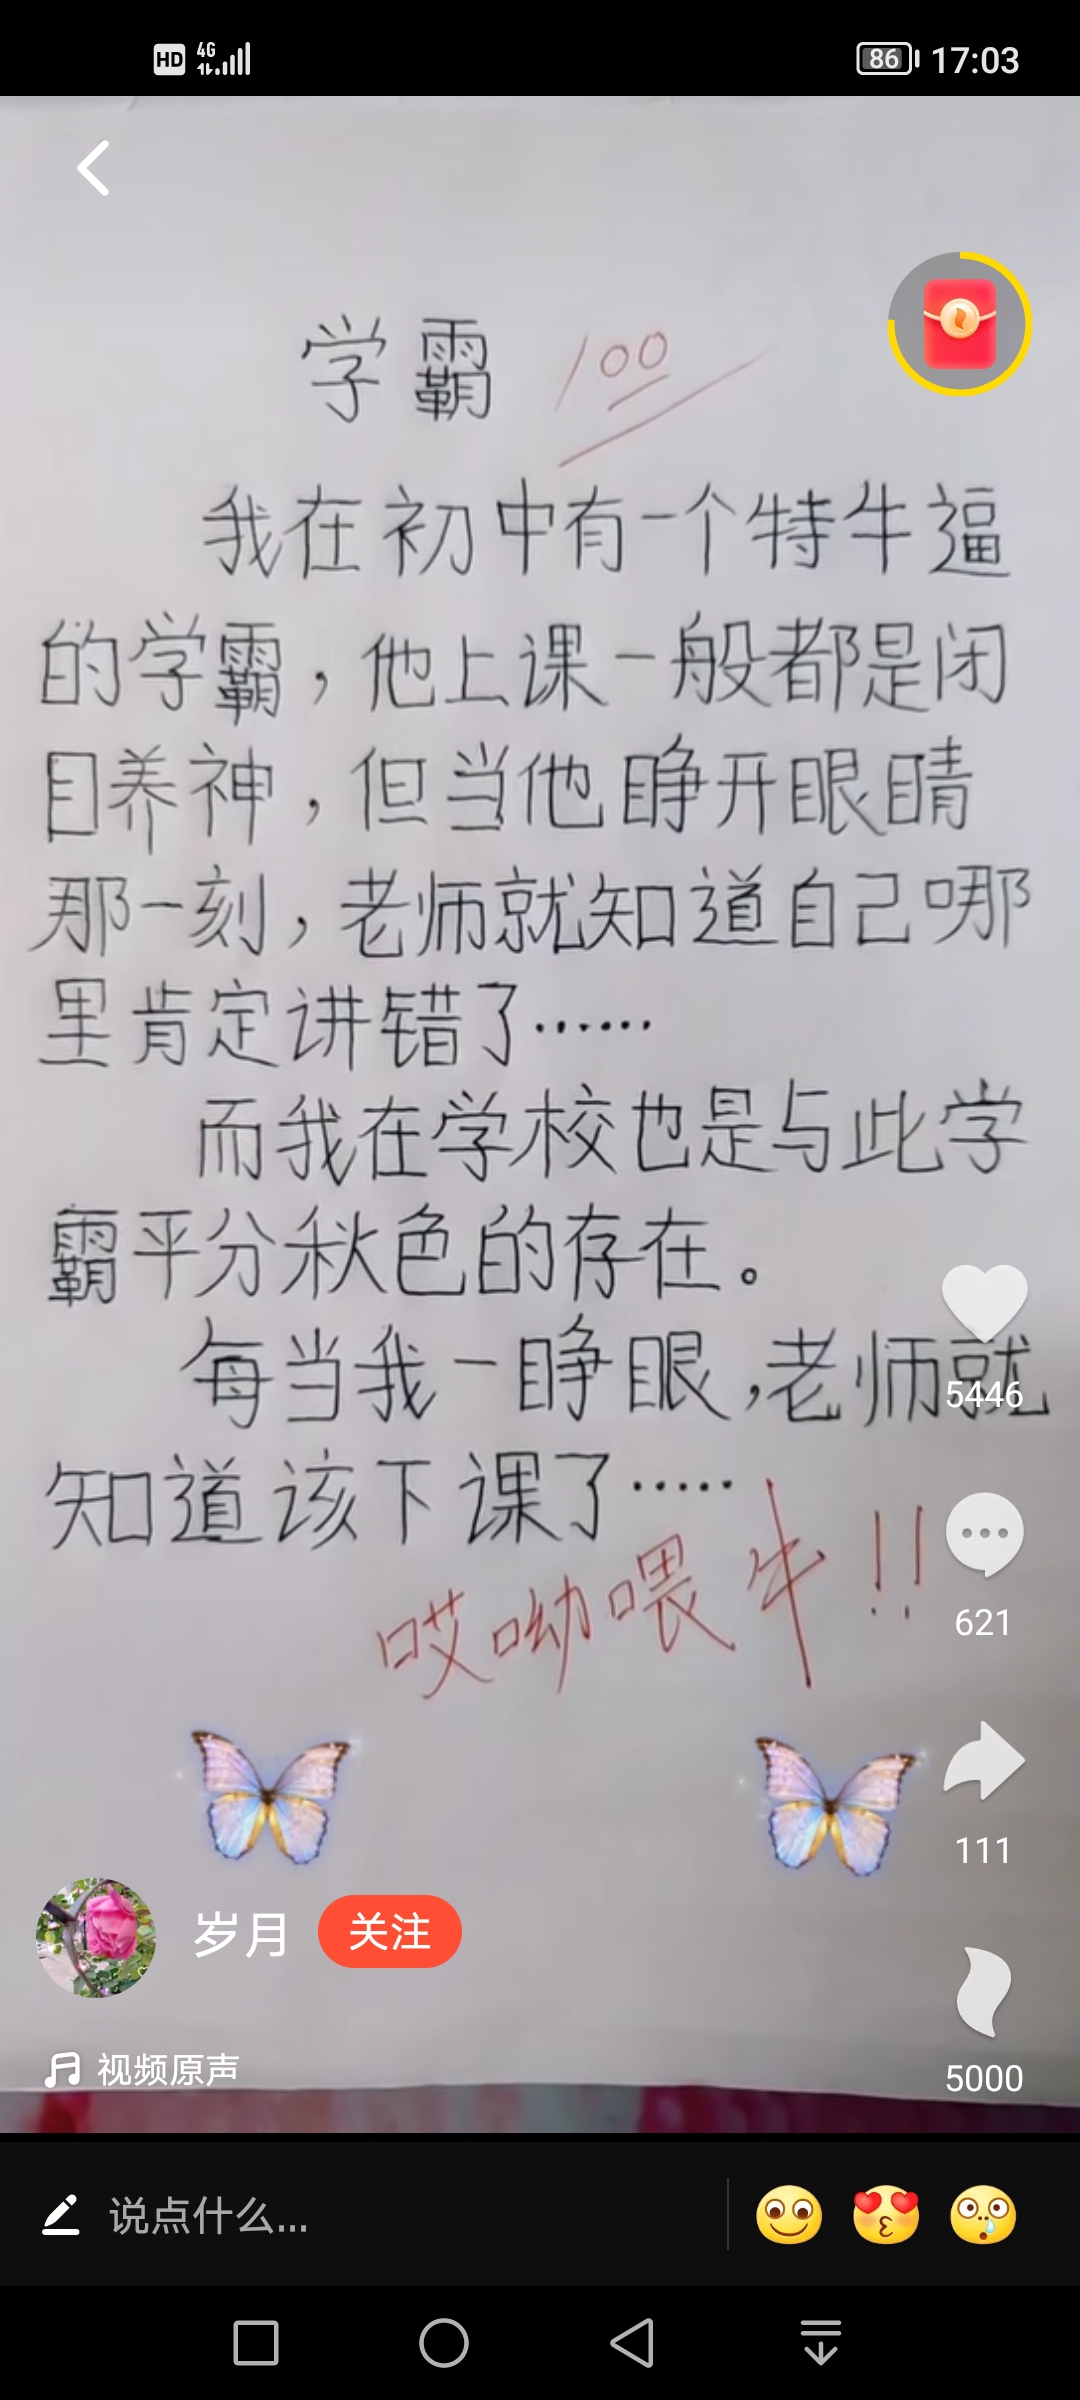 HD 4G 86 17:03
学霸 100
我在初中有一个特牛逼
的学霸，他上课一般都是闭
目养神，但当他睁开眼睛
那一刻，老师就知道自己哪
里肯定讲错了……
而我在学校也是与此学
霸平分秋色的存在。
每当我一睁眼，老师就
知道该下课了……
哎呦喂牛!!
5446
621
111
岁月 关注
视频原声
5000
说点什么...